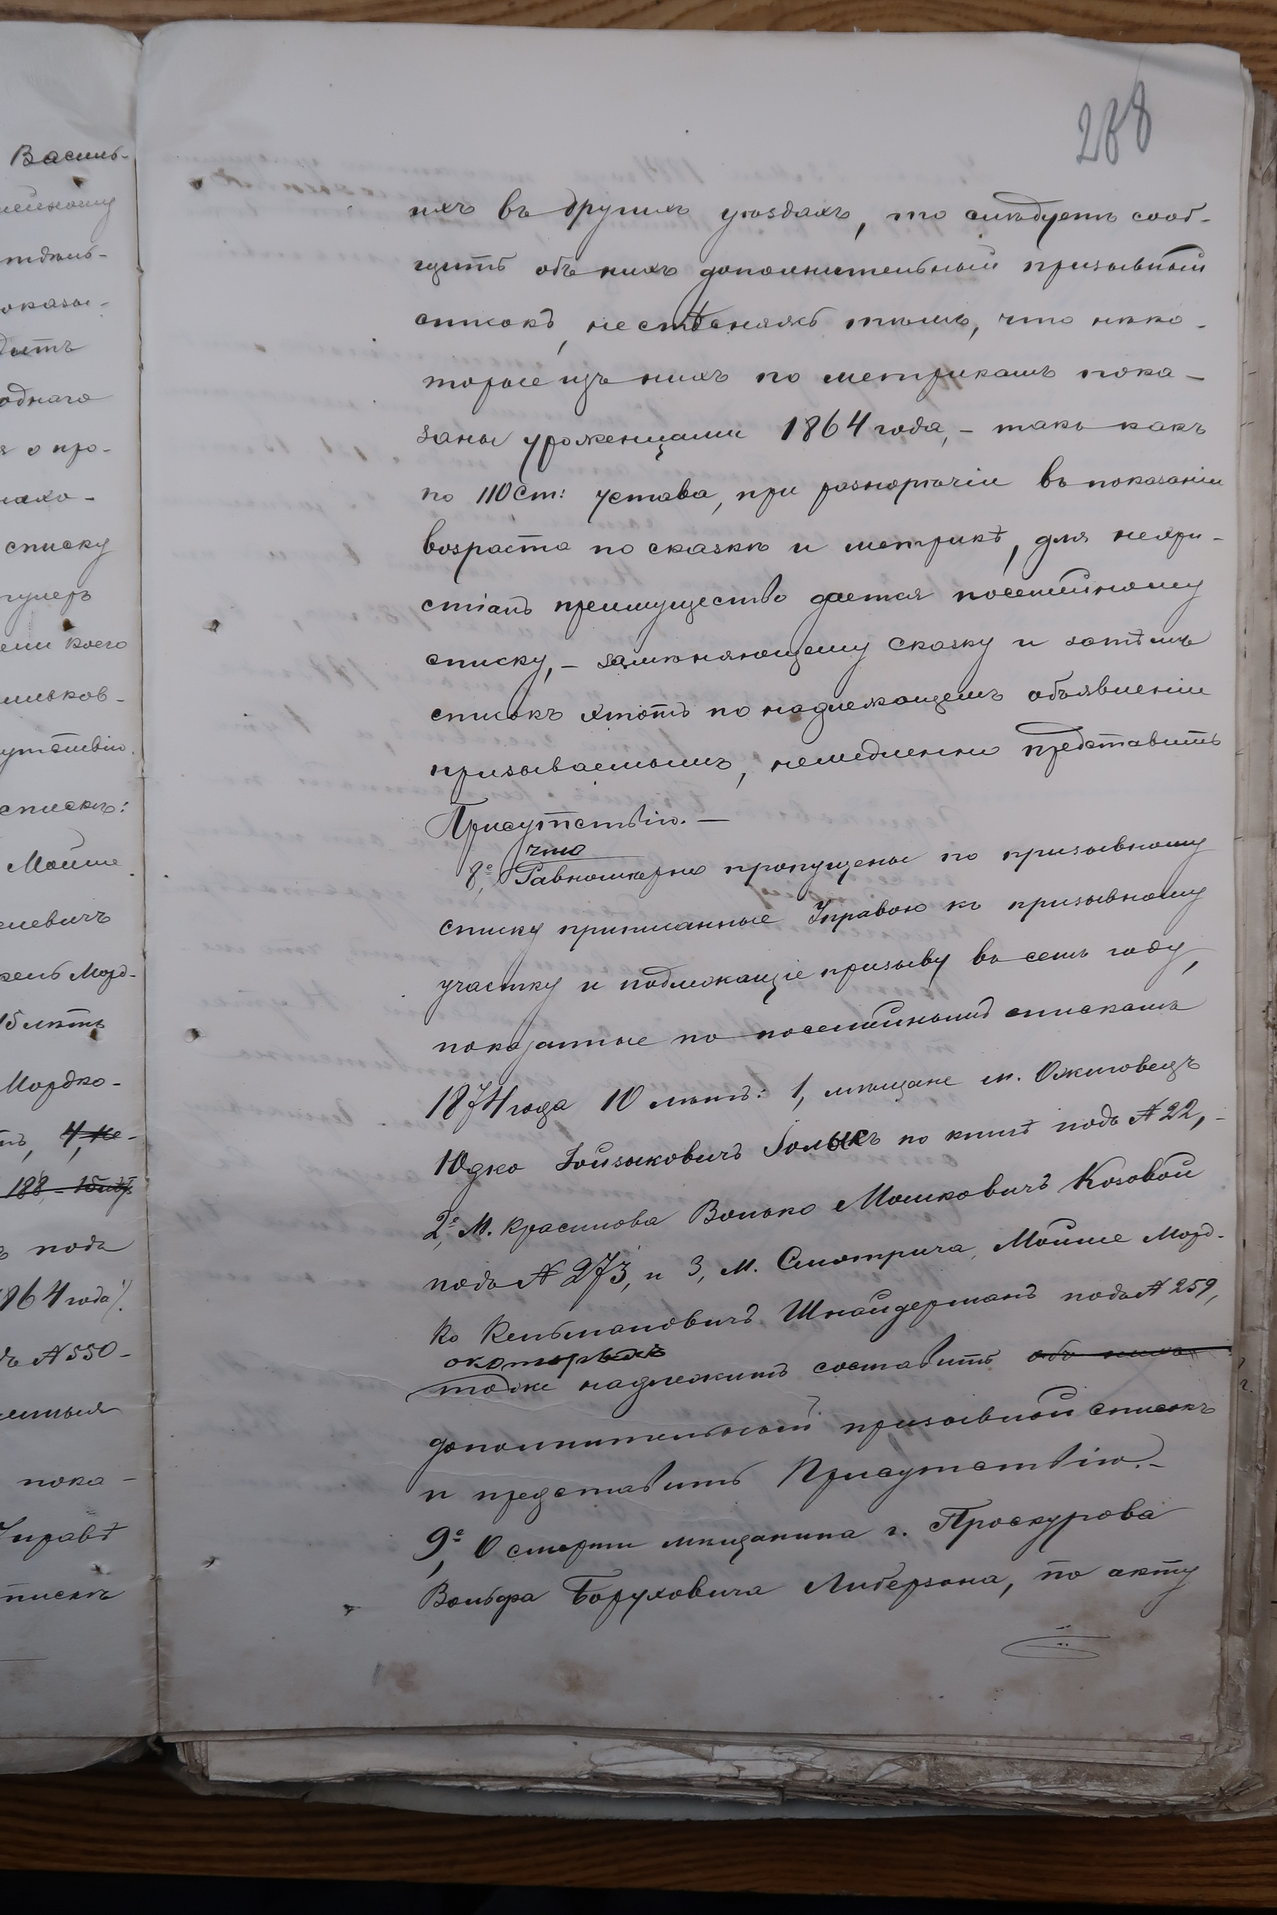 288
нихъ въ другихъ уѣздахъ, то слѣдуетъ сооб-
щить объ нихъ дополнительный призывный
списокъ, нестѣсняясь тѣмъ, что нѣко-
торые изъ нихъ по метрикамъ пока-
заны уроженцами 1864 года, – такъ какъ
по 110 ст: устава, при разнорѣчіи въ показаніи
возраста по сказкѣ и метрикѣ, для нехри-
стіанъ преимущество дается посемейному
списку, – замѣняющему сказку и затѣмъ
списокъ этотъ по надлежащемъ объявленіи
призываемымъ, немедленно представить
Присутствію. –
что
8º, Равномѣрно пропущены по призывному
списку приписанные Управою къ призывному
участку и подлежащіе призыву въ семъ году,
показанные по посемейнымъ спискамъ
1874 года 10 лѣтъ: 1, мѣщане м. Ожиговецъ
Юдко Іойзыковичъ Голыкъ по книгѣ подъ № 22, –
2º, м. Красилова Волько Мошковичъ Козовой
подъ № 273, и 3, м. Смотрича, Мойше Морд-
ко Кельмановичъ Шнайдерманъ подъ № 259,
о которыхъ
тоже надлежитъ составить объ нихъ
дополнительный призывной списокъ
и представить Присутствію. –
9º, О смерти мѣщанина г. Проскурова
Вольфа Боруховича Либерзона, по акту
Василь-
оказы-
однаго
о про-
списку
коего
списки:
Мойше
Морд-
15 лѣтъ
Мордко-
4,
188
подъ
1864 года).
№ 550 –
пока-
Управѣ